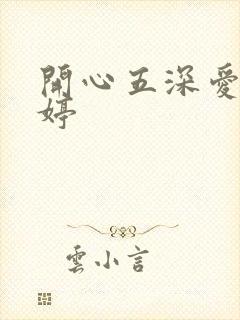 開心五深愛
婷
雲小言